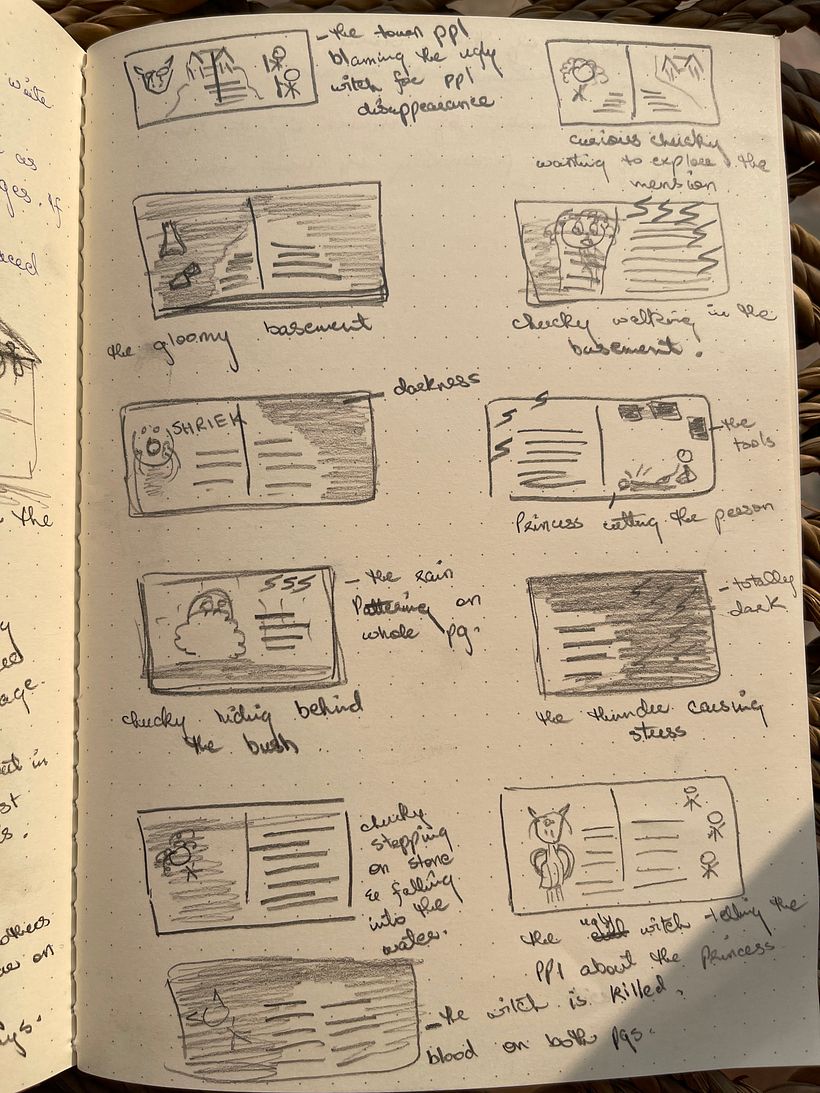 write
as
ges. If
the
age.
in
others
on
- the town ppl
blaming the ugly
witch for ppl
disappearance
curious chucky
wanting to explore the
mension
the gloomy basement
chucky walking in the
basement.
darkness
SHRIEK
- the
tools
Princess cutting the person
- the rain
Pattering on
whole pg.
chucky hiding behind
the bush
- totally
dark
the thunder causing
stress
chucky
stepping
on stone
& falling
into the
water.
the ugly witch telling the
ppl about the Princess
- the witch is killed.
blood on both pgs.